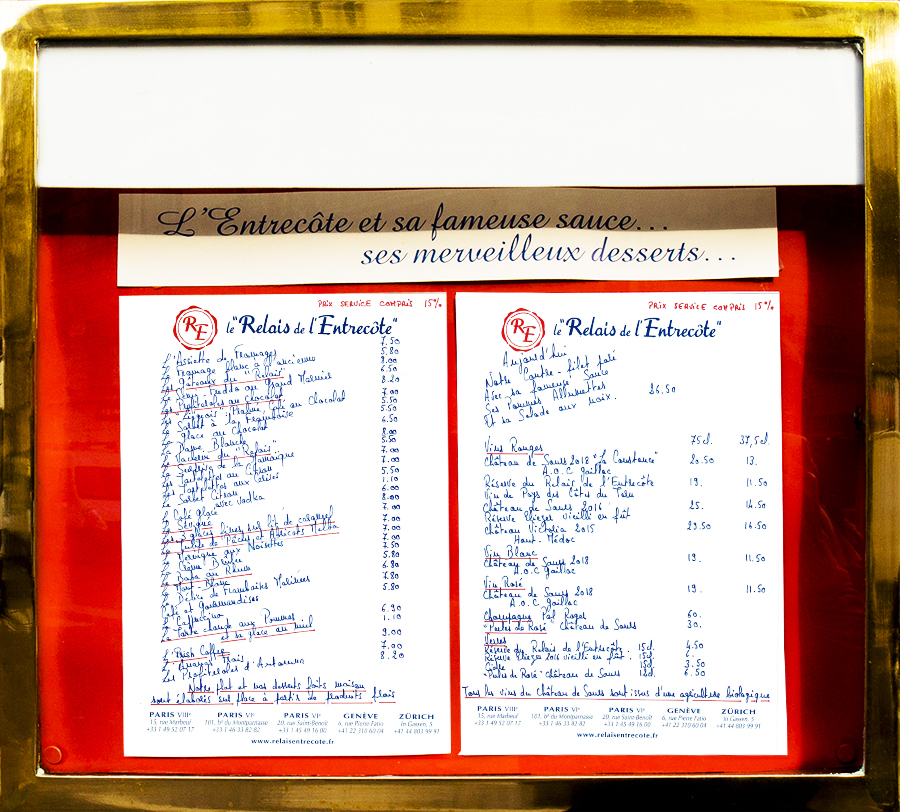 L'Entrecôte et sa fameuse sauce...
ses merveilleux desserts...
PRIX SERVICE COMPRIS 15%
RE
le "Relais de l'Entrecôte"
7.50
L'Assiette de Fromages 5.80
Le Fromage blanc à l'ancienne 8.00
Les Gâteaux du "Relais" 6.50
Grand Marnier 8.20
Les Profiteroles au chocolat 7.00
au Chocolat 5.50
Le Sorbet à la Framboise 5.50
La glace au Chocolat 6.50
La Dame Blanche 8.00
Le Vacherin du "Relais" 5.50
de la Jamaïque 7.00
Les Tartelettes au Citron 7.00
Les Tartelettes aux Cerises 5.50
Le Sorbet Citron 1.10
avec Vodka 6.00
Le Café glacé 8.00
7.00
Les 3 glaces fines sur lit de caramel 7.00
Pêches et Abricots Melba 7.00
La Meringue aux Noisettes 7.00
La Crème Brulée 7.50
Le Baba au Rhum 5.80
Le Mont-Blanc 6.80
Le Délice de Framboises Marinées 7.80
Café et gourmandises 5.80
Le Cappuccino 6.90
La Tarte chaude aux Pommes 1.10
et sa glace au miel 9.00
L'Irish Coffee 7.00
L'Ananas Frais 8.20
Les Profiteroles d'Automne
Notre plat et nos desserts faits maison
sont élaborés sur place à partir de produits frais
PARIS VIIIe PARIS VIe PARIS VIe GENÈVE ZÜRICH
15, rue Marbeuf 101, bd du Montparnasse 20, rue Saint-Benoît 6, rue Pierre Fatio In Gassen, 5
+33 1 49 52 07 17 +33 1 46 33 82 82 +33 1 45 49 16 00 +41 22 310 60 04 +41 44 803 99 91
www.relaisentrecote.fr
PRIX SERVICE COMPRIS 15%
RE
le "Relais de l'Entrecôte"
Aujourd'hui
Notre Contre-filet paré
Avec sa fameuse Sauce
Ses Pommes Allumettes 26.50
Et sa Salade aux noix.
75cl. 37,5cl.
Vins Rouges
Château de Saurs 2018 "La Constance" 20.50 13.
A.O.C Gaillac
Réserve du Relais de l'Entrecôte 19. 11.50
Vin de Pays des Côtes du Tarn
Château de Saurs 2016 25. 14.50
Réserve Eliezer vieilli en fût
Château Victoria 2015 29.50 16.50
Haut-Médoc
Vin Blanc
Château de Saurs 2018 19. 11.50
A.O.C Gaillac
Vin Rosé
Château de Saurs 2018 19. 11.50
A.O.C Gaillac
Champagne Pol Roger 60.
"Perles de Rosé" Château de Saurs 30.
Verres
Réserve du Relais de l'Entrecôte. 15cl. 4.50
Réserve Eliezer 2016 vieilli en fût. 15cl. 6.
Cidre 15cl. 3.50
"Perles de Rosé" Château de Saurs 12cl. 6.50
Tous les vins du Château de Saurs sont issus d'une agriculture biologique
PARIS VIIIe PARIS VIe PARIS VIe GENÈVE ZÜRICH
15, rue Marbeuf 101, bd du Montparnasse 20, rue Saint-Benoît 6, rue Pierre Fatio In Gassen, 5
+33 1 49 52 07 17 +33 1 46 33 82 82 +33 1 45 49 16 00 +41 22 310 60 04 +41 44 803 99 91
www.relaisentrecote.fr